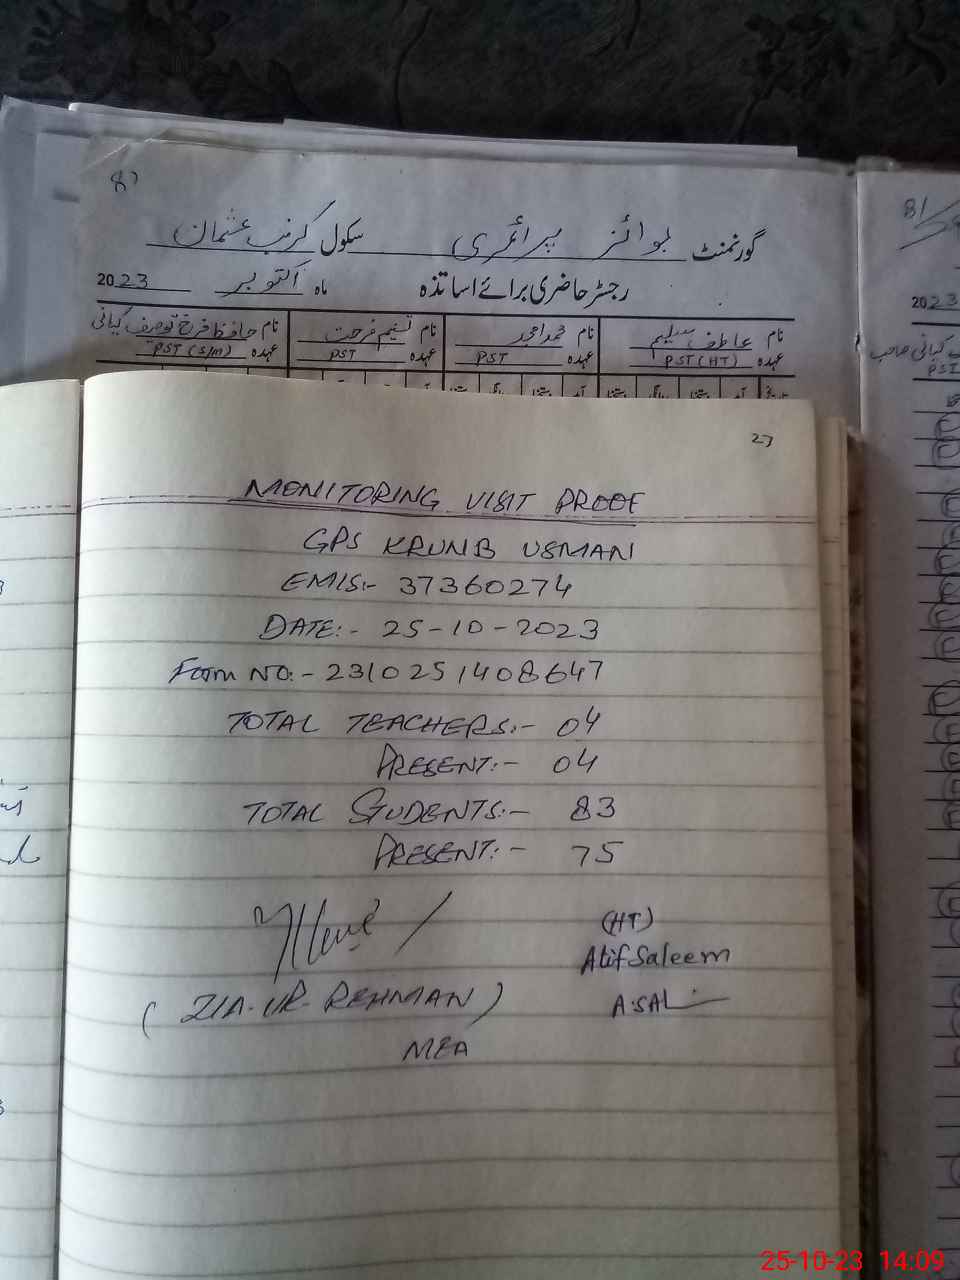 8)
گورنمنٹ بوائز پرائمری سکول کرنب عثمان
رجسٹر حاضری برائے اساتذہ ماہ اکتوبر 2023
نام عاطف سلیم نام محمد امجد نام تسنیم فرحت نام حافظ فرخ توصیف کیانی
عہدہ PST (HT) عہدہ PST عہدہ PST عہدہ PST (S/M)
81
2023
کیانی صاحب
PST
27
MONITORING VISIT PROOF
GPS KRUNB USMAN
EMIS:- 37360274
DATE:- 25-10-2023
Form NO:- 2310251408647
TOTAL TEACHERS:- 04
PRESENT:- 04
TOTAL STUDENTS:- 83
PRESENT:- 75
(HT)
Atif Saleem
A.SAL
(ZIA-UR-REHMAN)
MEA
25-10-23 14:09